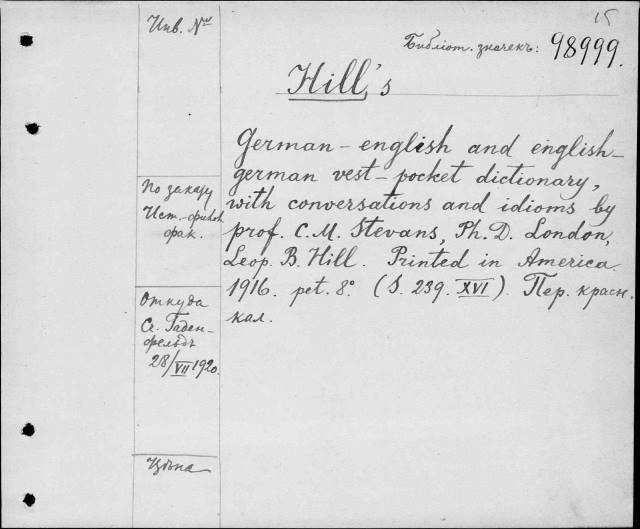 15
Инв. №
Библіот. значекъ: 98999.
Hill's
German - english and english-
german vest-pocket dictionary,
with conversations and idioms by
prof. C. M. Stevans, Ph. D. London,
Leop. B. Hill. Printed in America.
1916. pet. 8° (S. 239. XVI). Пер. красн.
кал.
По заказу
Ист.-филол
фак.
Откуда
Ск. Гаден-
фельдъ
28/VII 1920.
Цѣна